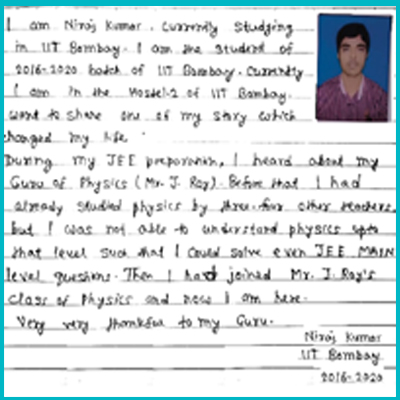 I am Niraj Kumar. Currently Studying
in IIT Bombay. I am the student of
2016-2020 batch of IIT Bombay. Currently
I am in the Hostel-2 of IIT Bombay.
want to share one of my story which
changed my life.
During my JEE preparation, I heard about my
Guru of Physics (Mr. J. Ray). Before that I had
already studied physics by three-four other teachers.
but I was not able to understand physics upto
that level such that I could solve even JEE MAIN
level questions. Then I had joined Mr. J. Ray's
class of Physics and now I am here.
Very very thankful to my Guru.
Niraj Kumar
IIT Bombay
2016-2020